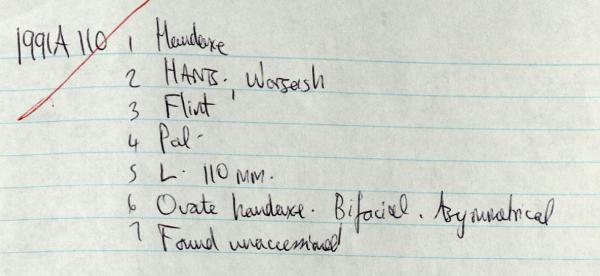 1991A 110 1 Handaxe
2 HANTS. Warsash
3 Flint
4 Pal-
5 L. 110 MM.
6 Ovate handaxe. Bifacial. Asymmetrical
7 Found unaccessioned